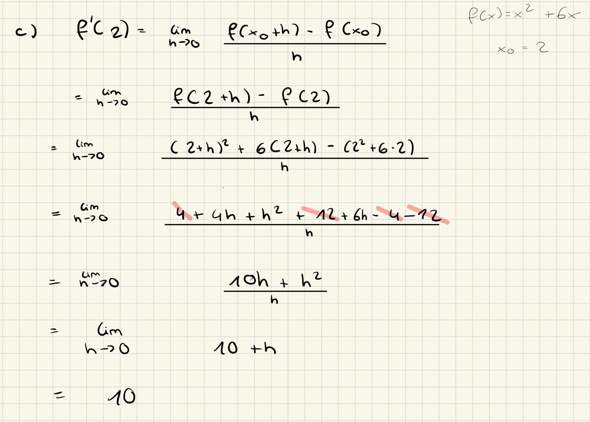 f(x)=x² + 6x
x₀ = 2
c) f'(2) = lim h→0 (f(x₀+h) - f(x₀))/h
= lim h→0 (f(2+h) - f(2))/h
= lim h→0 ((2+h)² + 6(2+h) - (2²+6·2))/h
= lim h→0 (4 + 4h + h² + 12 + 6h - 4 - 12)/h
= lim h→0 (10h + h²)/h
= lim h→0 10 + h
= 10